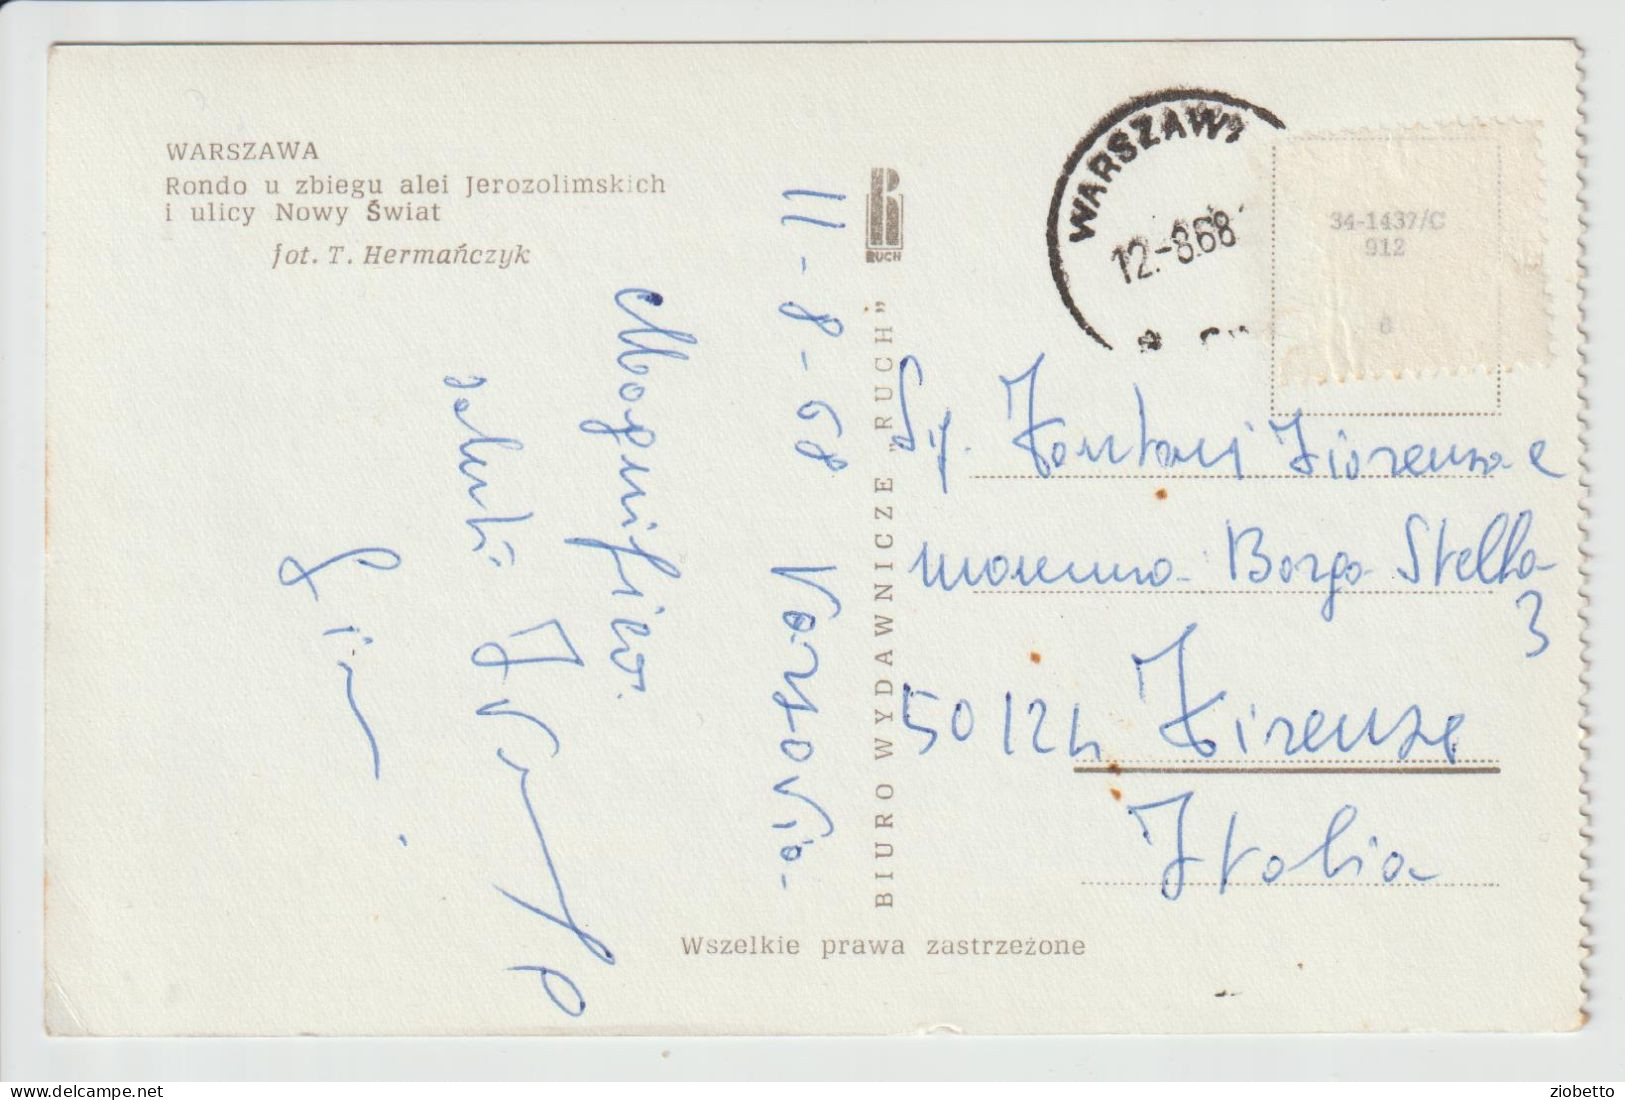 WARSZAWA
Rondo u zbiegu alei Jerozolimskich
i ulicy Nowy Świat
fot. T. Hermańczyk
11-8-68 Varsavia
Magnifico.
saluti
RUCH
BIURO WYDAWNICZE „RUCH”
Wszelkie prawa zastrzeżone
WARSZAWA
12.-8.68
34-1437/C
912
8
Sig. Fontani Fiorenza e
mamma Borgo Stella
3
50124 Firenze
Italia
ziobetto
delcampe.net